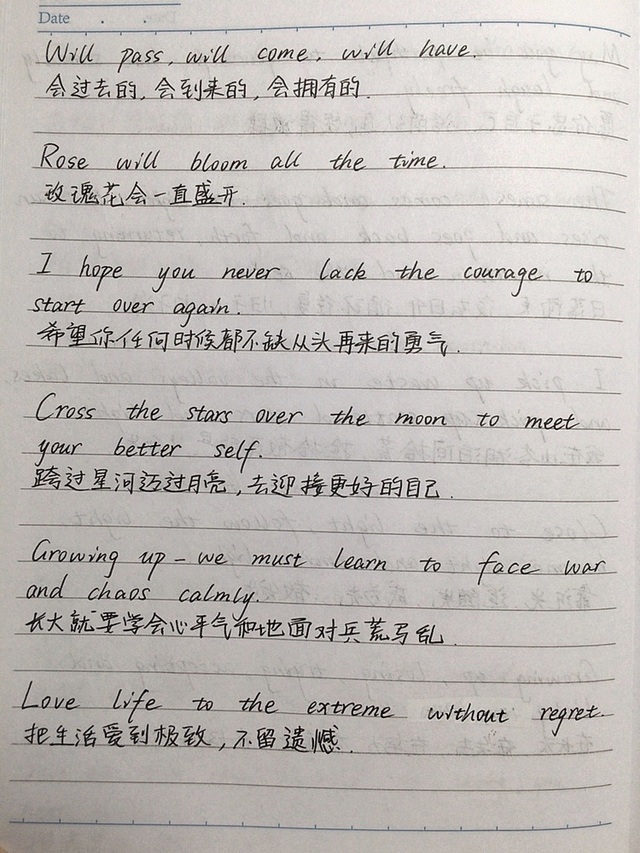 Date
Will pass, will come, will have.
会过去的,会到来的,会拥有的.
Rose will bloom all the time.
玫瑰花会一直盛开.
I hope you never lack the courage to
start over again.
希望你任何时候都不缺从头再来的勇气.
Cross the stars over the moon to meet
your better self.
跨过星河迈过月亮,去迎接更好的自己.
Growing up - we must learn to face war
and chaos calmly.
长大就要学会心平气和地面对兵荒马乱.
Love life to the extreme without regret.
把生活爱到极致,不留遗憾.